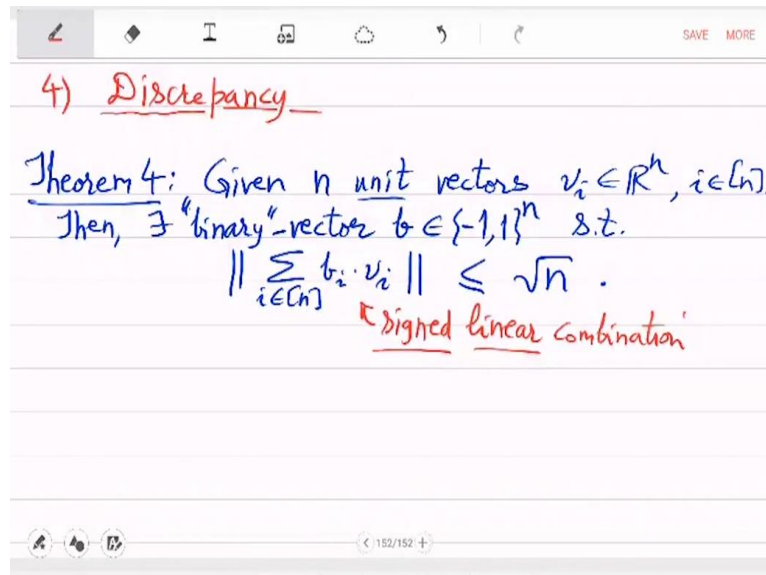 SAVE MORE
4) Discrepancy
Theorem 4: Given n unit vectors vᵢ ∈ ℝⁿ, i∈[n].
Then, ∃ "binary"-vector b ∈ {-1,1}ⁿ s.t.
|| Σ bᵢ·vᵢ || ≤ √n .
i∈[n]
signed linear combination
152/152